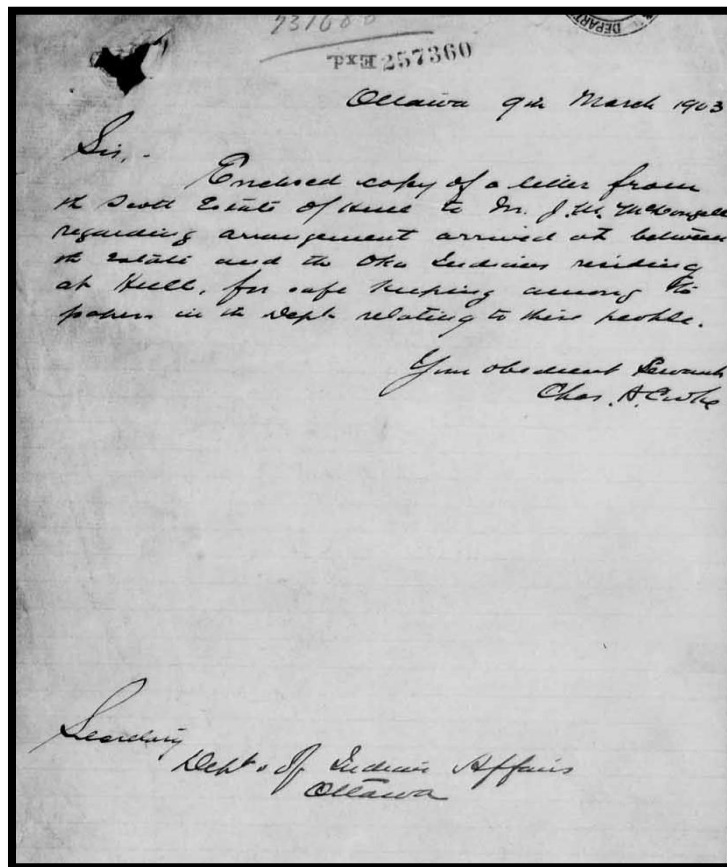 Exd. 257360
DEPAR
Ottawa 9th March 1903
Sir,.
Enclosed copy of a letter from
th Scott Estate of Hull to Mr. J. M. McDougall
regarding arrangement arrived at between
th Estate and th Oka Indians residing
at Hull, for safe keeping among th
papers in th Dept relating to these people.
Your obedient Servant
Chas. A. Cooke
Secretary
Dept. of Indian Affairs
Ottawa